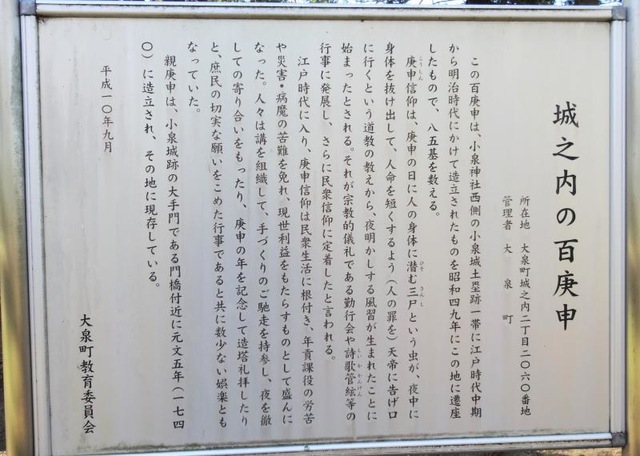 城之内の百庚申
所在地　大泉町城之内二丁目二〇六〇番地
管理者　大　泉　町
この百庚申は、小泉神社西側の小泉城土塁跡一帯に江戸時代中期
から明治時代にかけて造立されたものを昭和四九年にこの地に遷座
したもので、八五基を数える。
庚申信仰は、庚申の日に人の身体に潜む三尸という虫が、夜中に
身体を抜け出して、人命を短くするよう（人の罪を）天帝に告げ口
に行くという道教の教えから、夜明かしする風習が生まれたことに
始まったとされる。それが宗教的儀礼である勤行会や詩歌管絃等の
行事に発展し、さらに民衆信仰に定着したと言われる。
江戸時代に入り、庚申信仰は民衆生活に根付き、年貢課役の労苦
や災害・病魔の苦難を免れ、現世利益をもたらすものとして盛んに
なった。人々は講を組織して、手づくりのご馳走を持参し、夜を徹
しての寄り合いをもったり、庚申の年を記念して造塔礼拝したり
と、庶民の切実な願いをこめた行事であると共に数少ない娯楽とも
なっていた。
親庚申は、小泉城跡の大手門である門橋付近に元文五年（一七四
〇）に造立され、その地に現存している。
平成一〇年九月
大泉町教育委員会